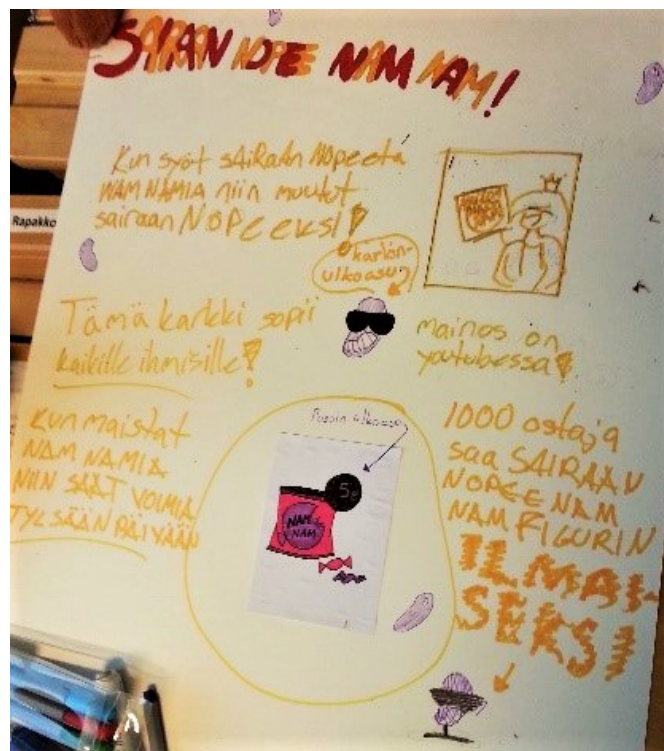 SAIRAN NOPEE NAM NAM!
Kun syöt SAIRAAN NOPEETA
NAM NAMIA niin muutut
sairaan NOPEEKSI!
karkin-
ulkoasu
Tämä karkki sopii
kaikille ihmisille!
mainos on
youtubessa!
Kun maistat
NAM NAMIA
NIIN SAAT VOIMIA
TYLSÄÄN PÄIVÄÄN
Pussin ulkoasu
5
NAM
NAM
1000 ostaja
saa SAIRAAN
NOPEE NAM
NAM FIGURIN
ILMAI-
SEKSI
Rapakko